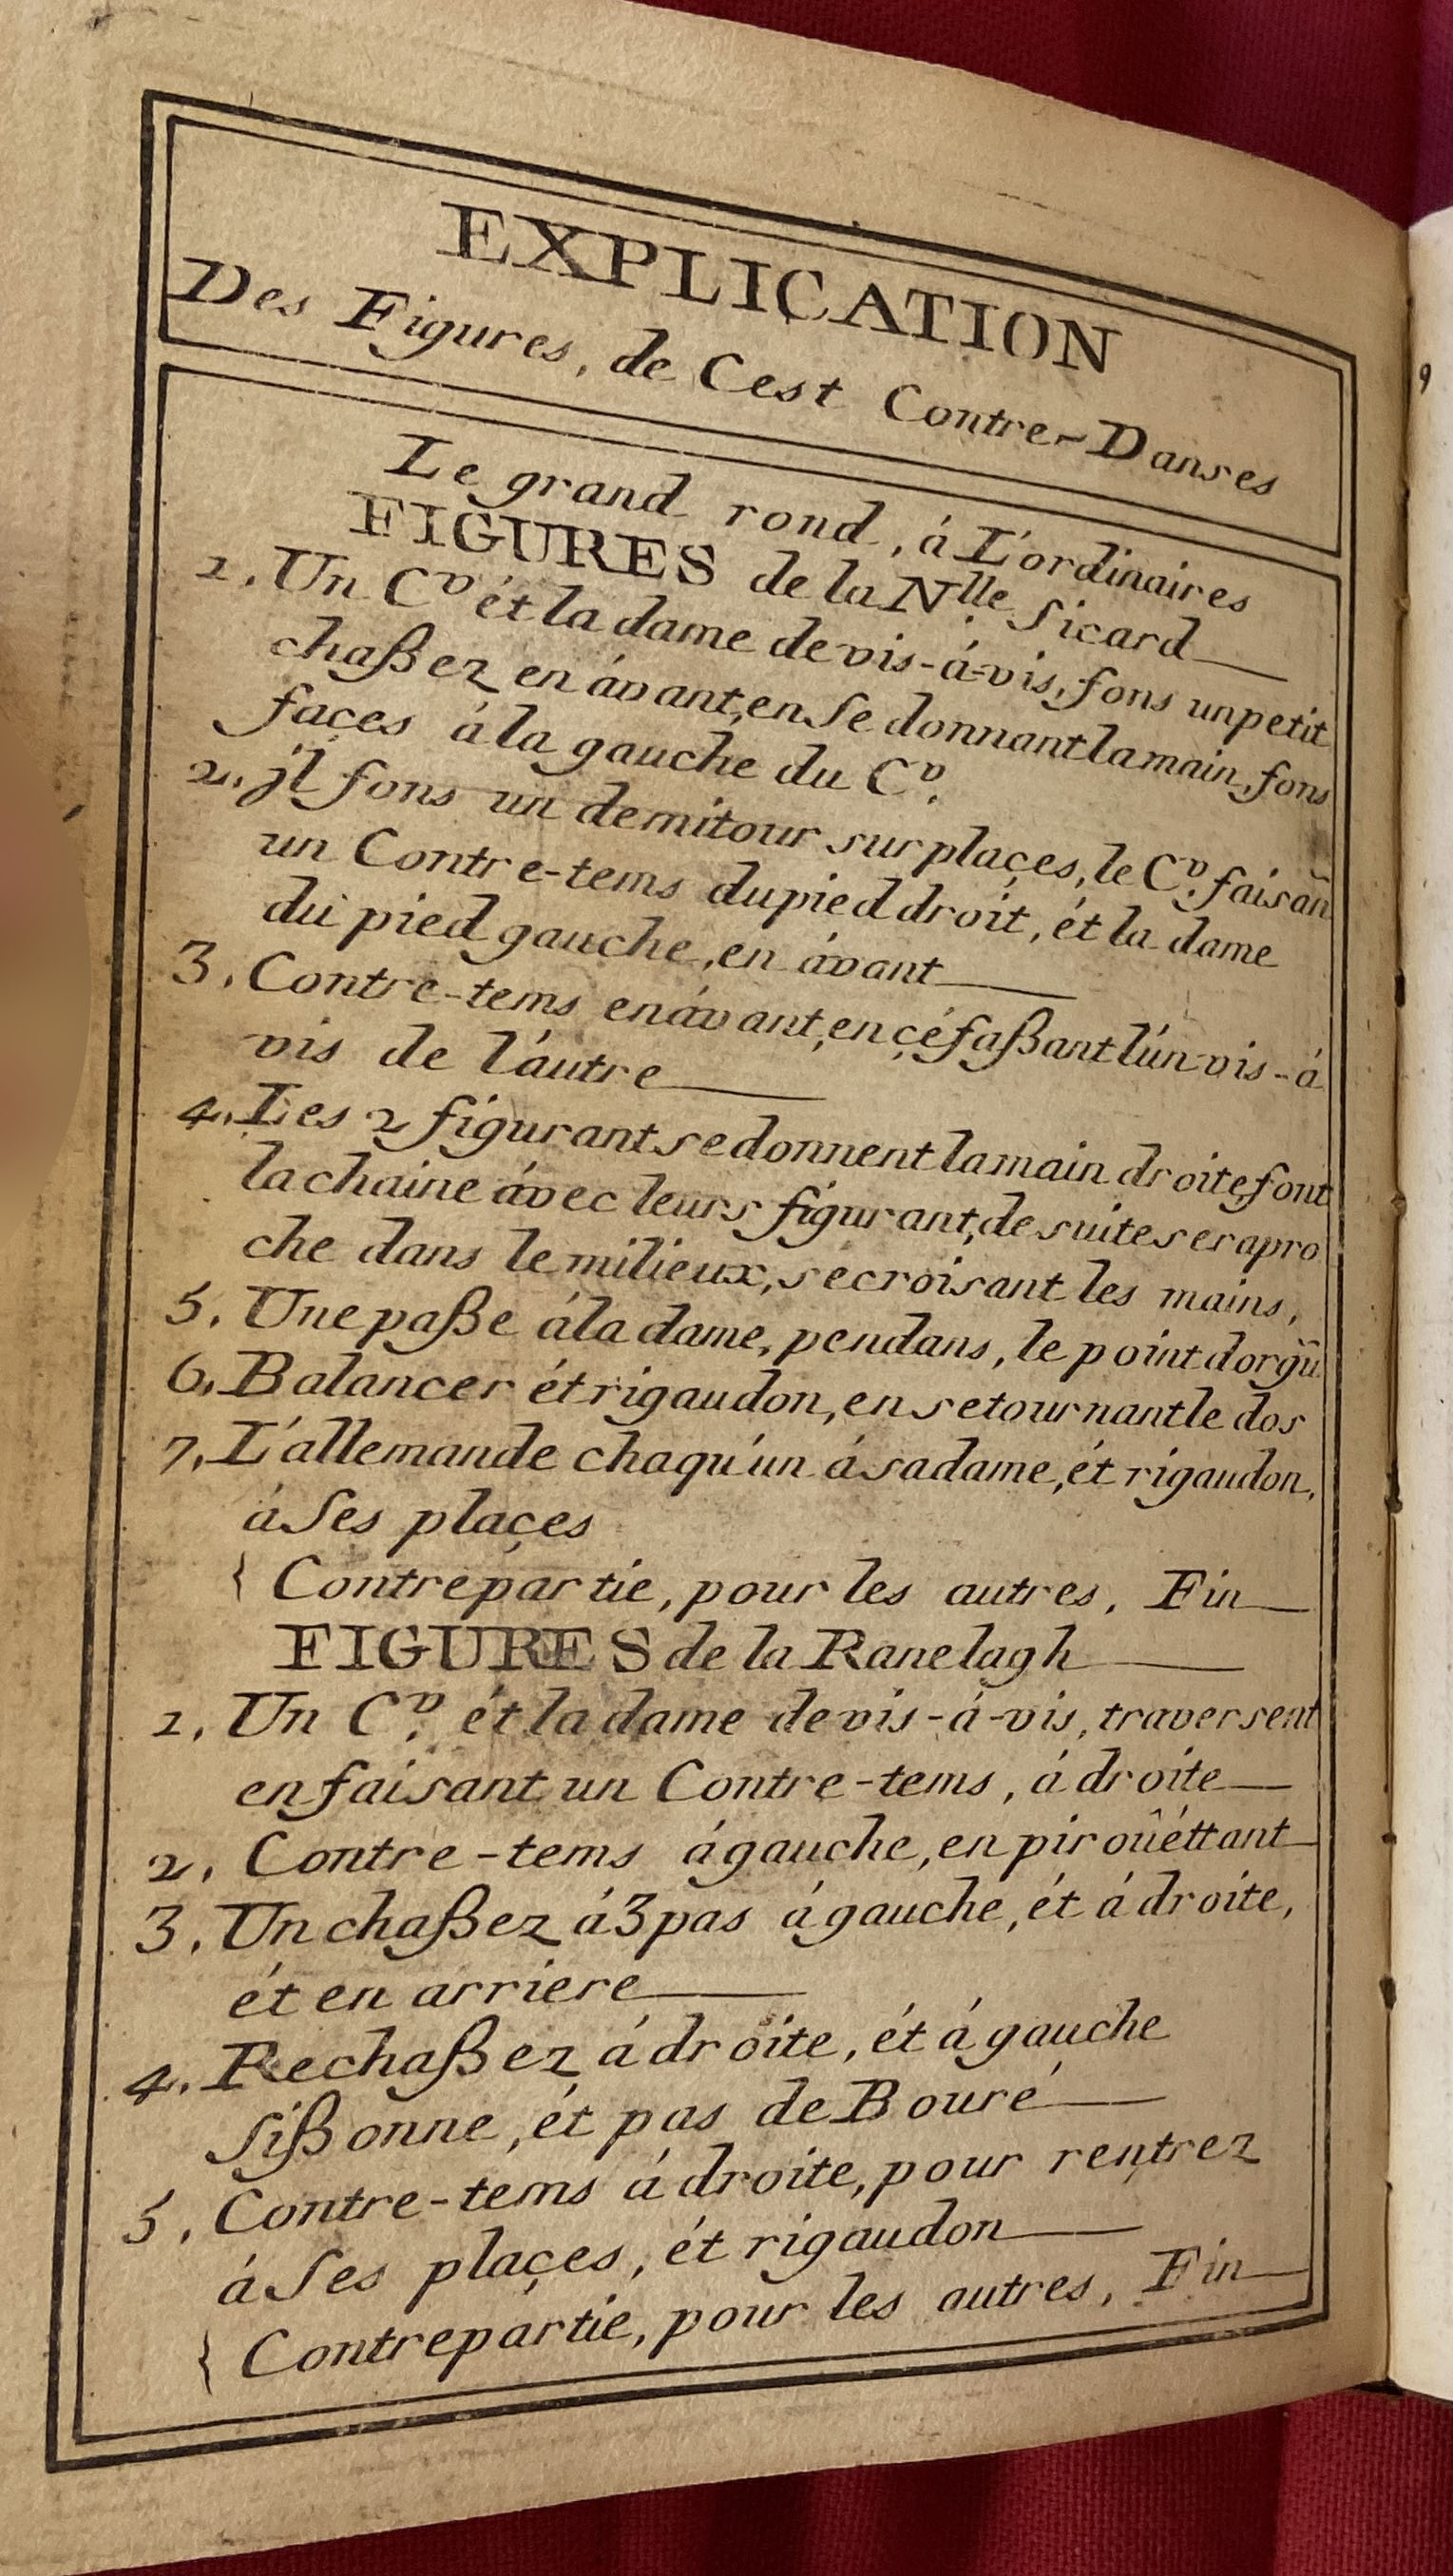 EXPLICATION
Des Figures, de Cest Contre-Danses
Le grand rond, á L'ordinaires
FIGURES de la N.lle Sicard
1. Un C.r ét la dame de vis-á-vis, fons un petit
chaßez en ávant, en Se donnant la main, fons
façes á la gauche du C.r
2. jl fons un demi tour sur plaçes, le C.r faisan
un Contre-tems du pied droit, ét la dame
du pied gauche, en ávant
3. Contre-tems en ávant, en çé faßant l'un vis-á
vis de l'autre
4. Les 2 figurant se donnent la main droite, font
la chaine ávec leurs figurant, de suite se rapro
che dans le milieux, se croisant les mains,
5. Une paße á la dame, pendans, le point dorgũ
6. Balancer ét rigaudon, en se tournant le dos
7. L'allemande chaqu'un á sa dame, ét rigaudon,
á Ses plaçes
{ Contrepartie, pour les autres, Fin
FIGURES de la Ranelagh
1. Un C.r ét la dame de vis-á-vis, traversent
en faisant un Contre-tems, á droite
2. Contre-tems á gauche, en piroûéttant
3. Un chaßez á 3 pas á gauche, ét á droite,
ét en arriere
4. Rechaßez á droite, ét á gauche
Sißonne, ét pas de Bouré
5. Contre-tems á droite, pour rentrez
á Ses plaçes, ét rigaudon
{ Contrepartie, pour les autres, Fin
9